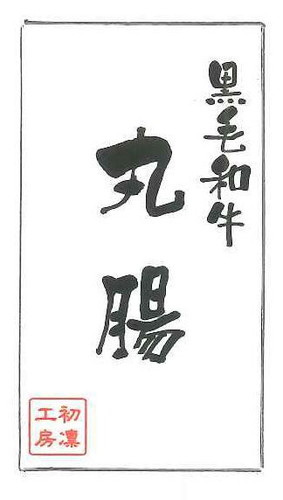 黒毛和牛
丸腸
初凛
工房